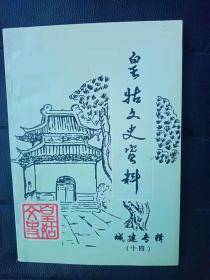 皇姑文史资料
皇姑
文史
城建专辑
(十四)